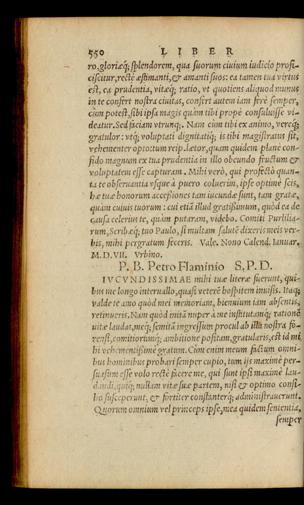 550 LIBER
ro, gloriæq; splendorem, qua suorum ciuium iudicio profi-
ciscitur, rectè æstimanti, & amanti suos: ea tamen tua virtus
est, ea prudentia, vitæq; ratio, vt quotiens aliquod munus
in te confert nostra ciuitas, confert autem iam ferè semper,
cùm potest, sibi ipsa magis quàm tibi propè consuluisse vi-
deatur. Sed faciam vtrunq;. Nam cùm tibi ex animo, vereq;
gratulor: vtq; voluptati dignitatiq; is tibi magistratus sit,
vehementer opto: tum reip. lætor, quam quidem planè con-
fido magnum ex tua prudentia in illo obeundo fructum &
voluptatem esse capturam. Mihi verò, qui profectò quan-
ta te obseruantia vsque à puero coluerim, ipse optimè scis,
hæ tuæ honorum accessiones tam iucundæ sunt, tam gratæ,
quàm cuiuis tuorum: cui etiã illud gratissimum, quòd ea de
causa celerius te, quàm putaram, videbo. Comiti Purlilia-
rum, Scribæq; tuo Paulo, si multam salutẽ dixeris meis ver-
bis, mihi pergratum feceris. Vale. Nono Calend. Ianuar.
M.D.VII. Vrbino.
P. B. Petro Flaminio S. P. D.
IVCVNDISSIMAE mihi tuæ literæ fuerunt, qui-
bus me longo interuallo, quasi veterẽ hospitem inuisis. Itaq;
valde te amo quòd mei memoriam, biennium iam absentis,
retinueris. Nam quòd initã nuper à me institutamq; rationẽ
vitæ laudas, meq; semitã ingressum procul ab illa nostra fo-
rensi, comitiorumq; ambitione positam, gratularis, est id mi
hi vehementissimè gratum. Cùm enim meum factum omni-
bus hominibus probari semper cupio, tum ijs maximè per-
suasum esse volo rectè facere me, qui sunt ipsi maximè lau-
dandi, quiq; nullam vitæ suæ partem, nisi & optimo consi-
lio susceperunt, & fortiter constanterq; administrauerunt.
Quorum omnium vel princeps ipse, mea quidem sententia,
semper